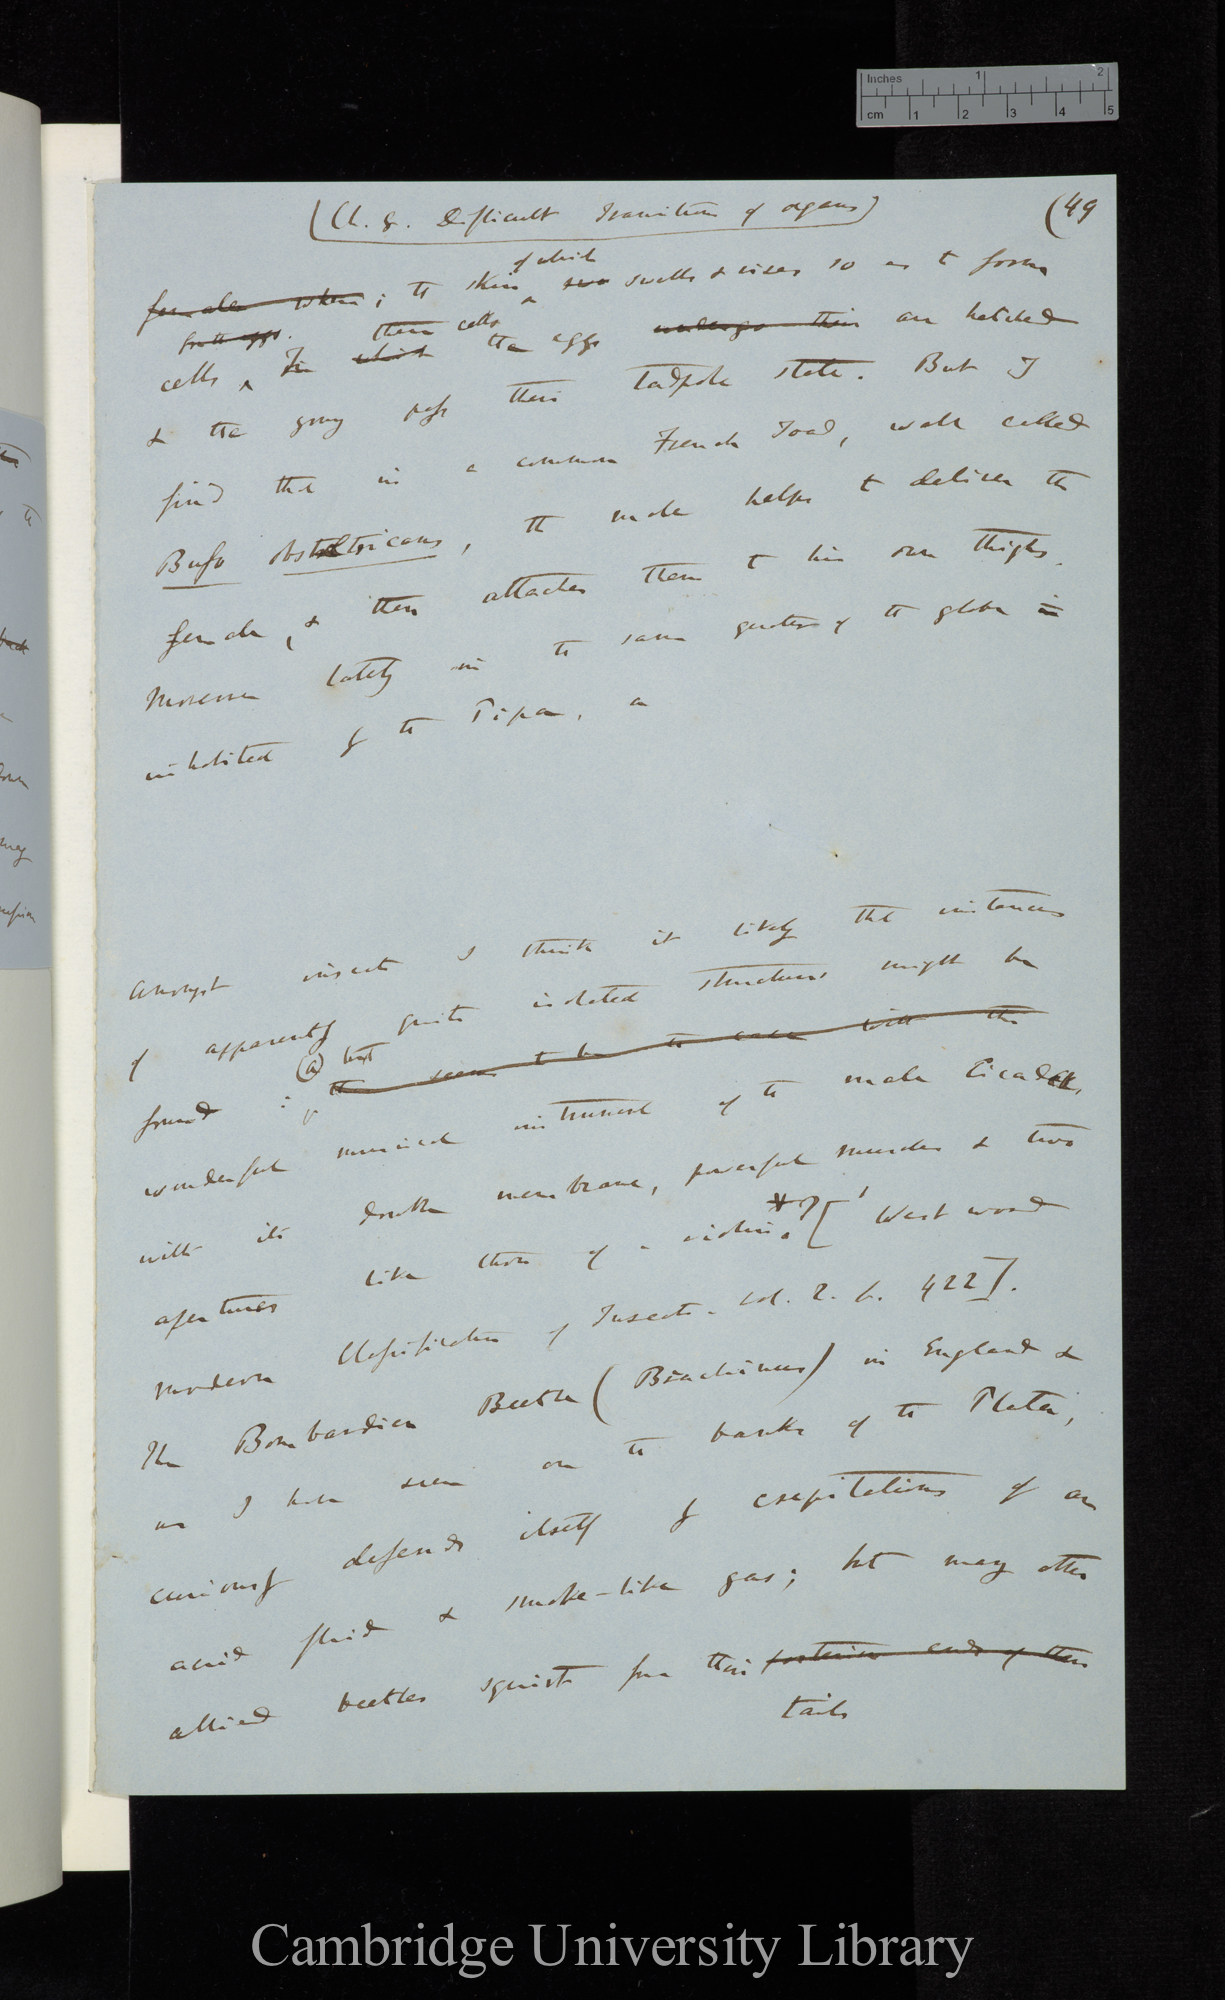 Inches 1 2
cm 1 2 3 4 5
(Ch. 8. Difficult Transitions of organs)
(49
of which
female when; the skin swells & rises so as to form
these cells
cells, In which the eggs undergo their are hatched
& the young pass their tadpole state. But I
find that in a common French Toad, well called
Bufo obstetricans, the male helps to deliver the
female, & then attaches them to his own thighs.
Moreover lately in the same quarter of the globe in
inhabited by the Pipa, a
Amongst insects I think it likely that instances
of apparently quite isolated structures might be
(a) but
found: this seems to be the case with the
wonderful musical instrument of the male Cicadas,
with its double membrane, powerful muscles & two
apertures like those of a violin.? [' Westwood
Modern Classification of Insects. vol. 2. p. 422].
The Bombardier Beetle (Brachinus) in England &
as I have seen on the banks of the Plata,
curiously defends itself by crepitations of an
acrid fluid & smoke-like gas; but many other
allied beetles squirt from their posterior ends of their
tails
Cambridge University Library